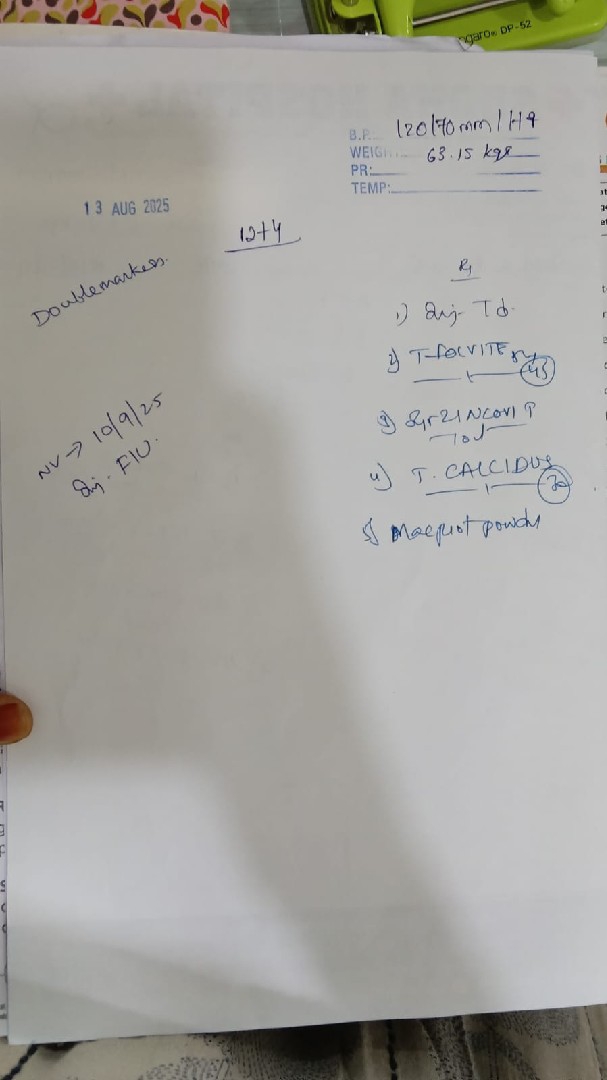 DP-52
B.P. 120/70 mm/Hg
WEIG 63.15 kgs
PR:
TEMP:
13 AUG 2025
12+4
Doublemarkers.
Rx
1) Inj- Td.
2) T-FOLVITE 5mg
45
3) Syr ZINCOVIT
4) T. CALCIDUS
30
5) powder
NV → 10/9/25
Inj. FIV.